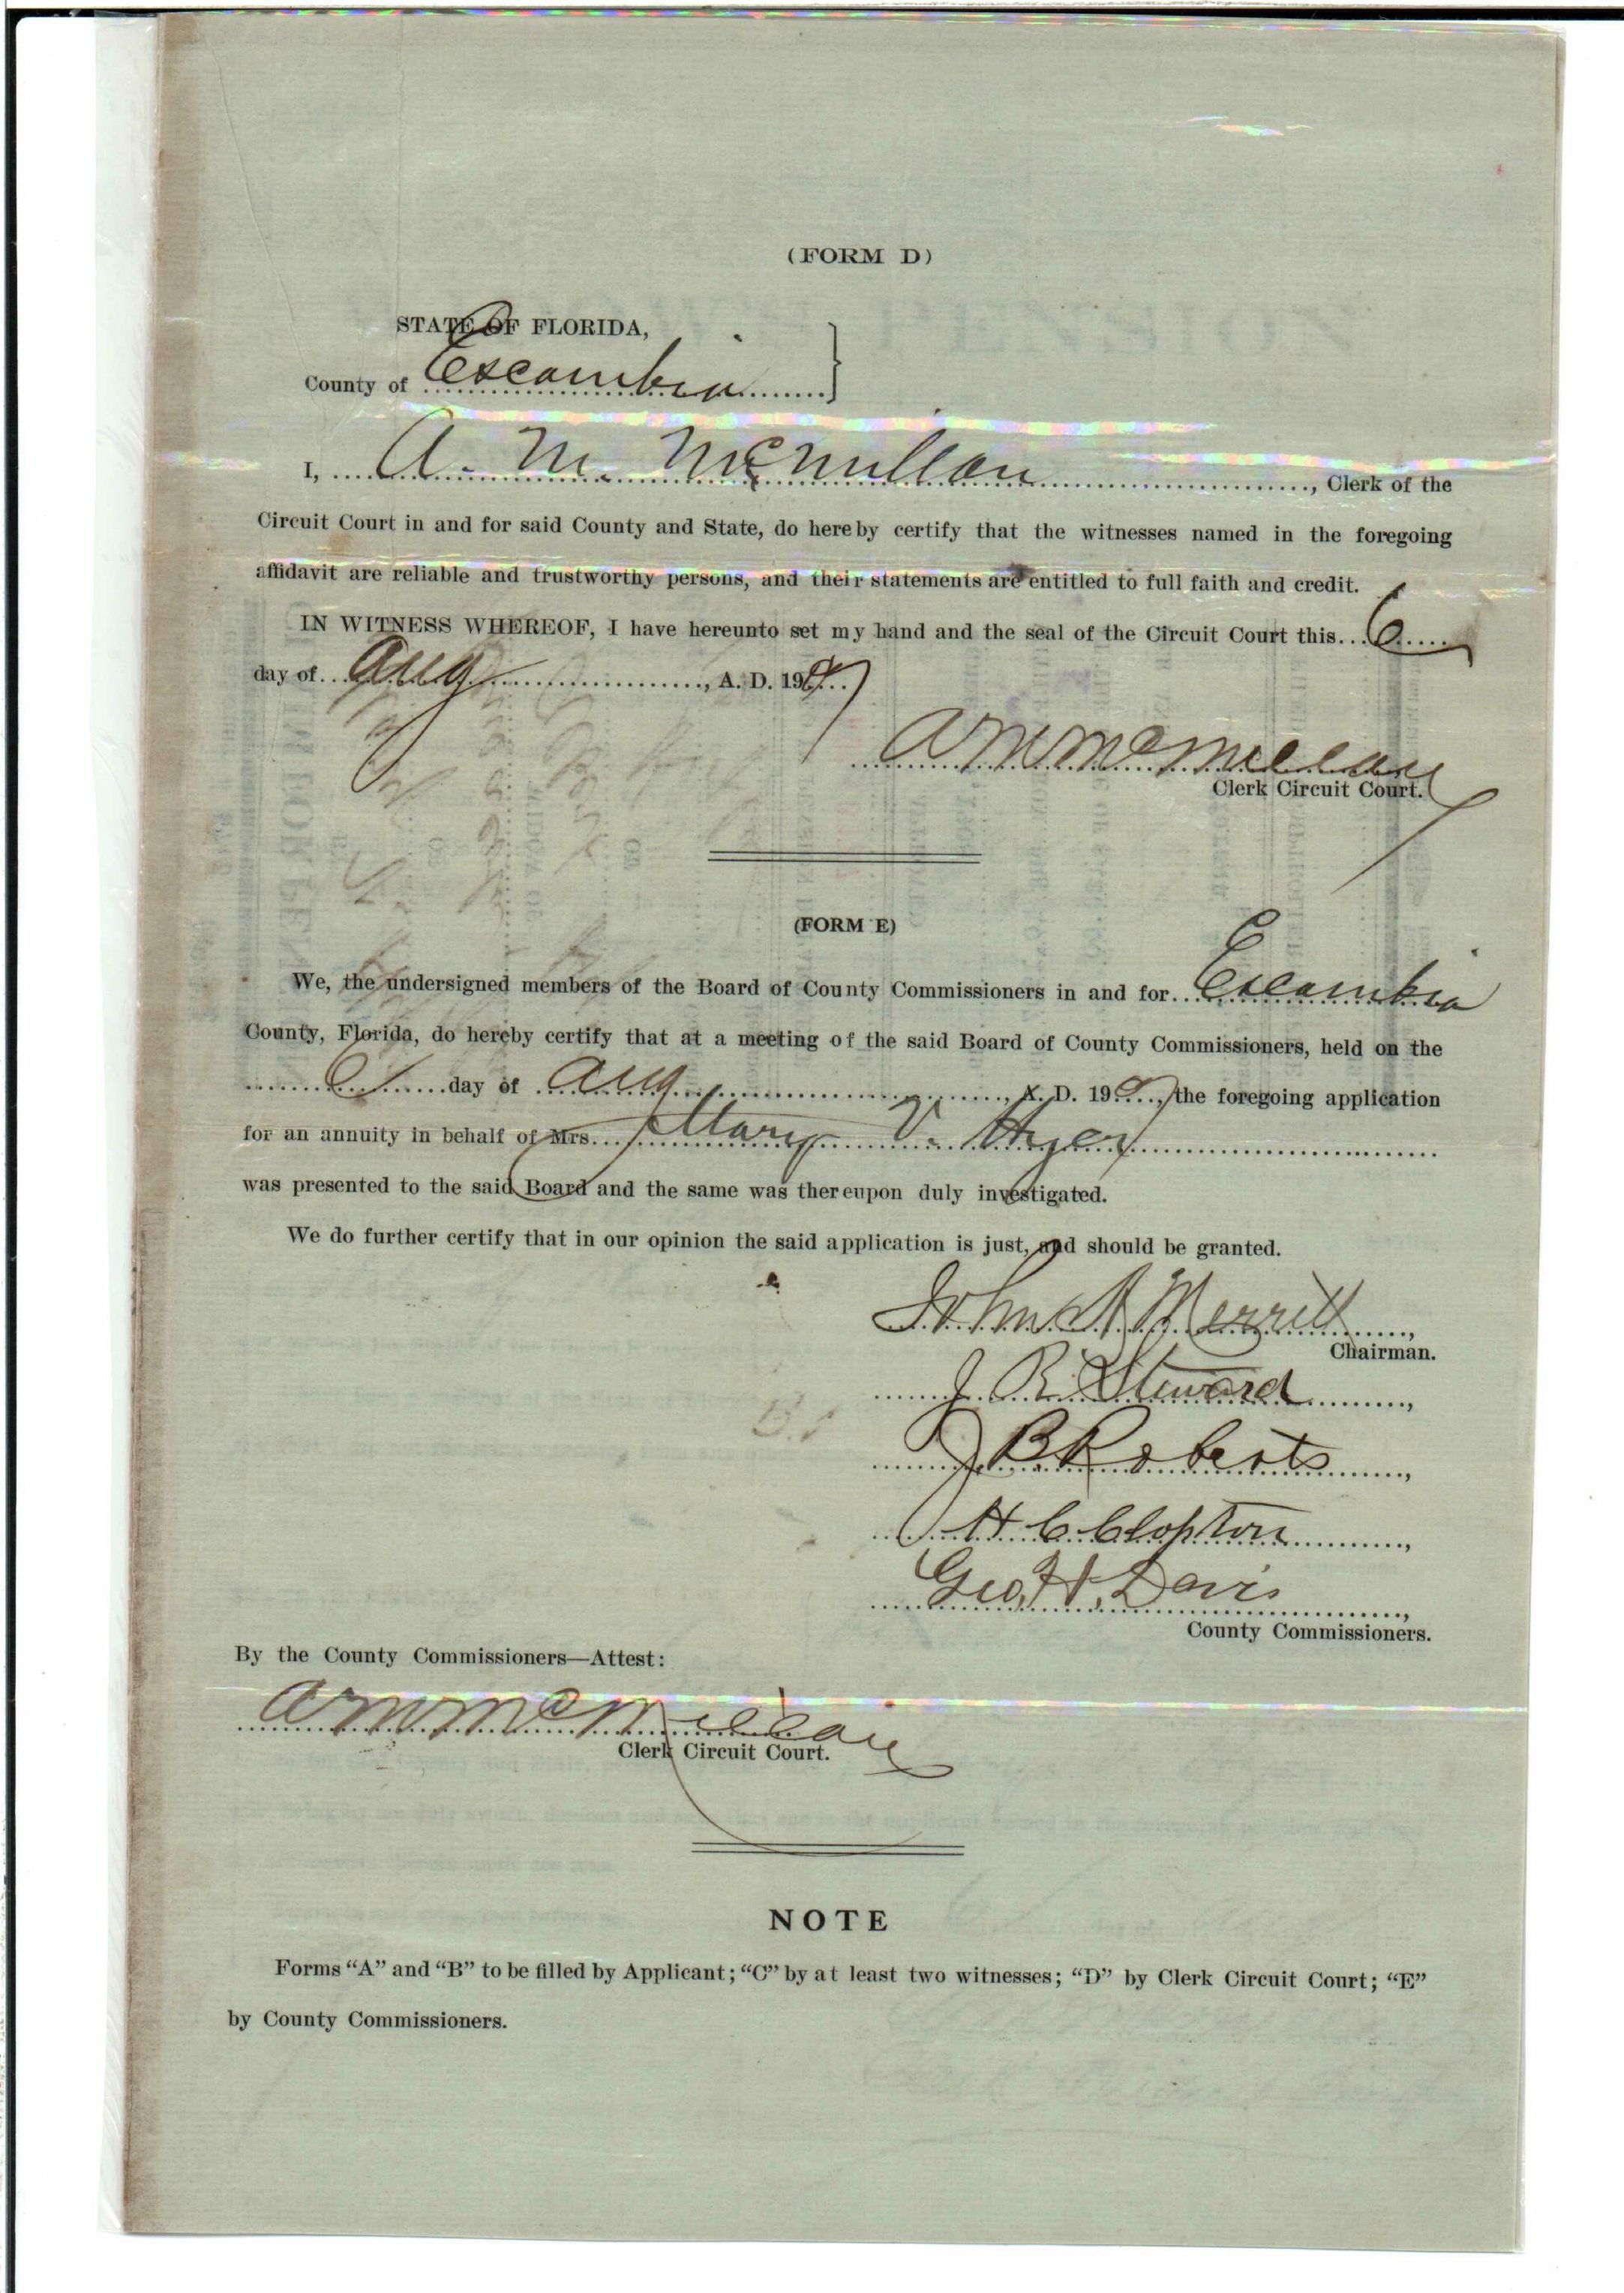 (FORM D)
STATE OF FLORIDA,
County of Escambia
I, A. M. McMillan, Clerk of the
Circuit Court in and for said County and State, do hereby certify that the witnesses named in the foregoing
affidavit are reliable and trustworthy persons, and their statements are entitled to full faith and credit.
IN WITNESS WHEREOF, I have hereunto set my hand and the seal of the Circuit Court this 6
day of Aug, A. D. 1907
A M McMillan
Clerk Circuit Court.
(FORM E)
We, the undersigned members of the Board of County Commissioners in and for Escambia
County, Florida, do hereby certify that at a meeting of the said Board of County Commissioners, held on the
6 day of Aug, A. D. 1907, the foregoing application
for an annuity in behalf of Mrs. Mary V. Hyer
was presented to the said Board and the same was thereupon duly investigated.
We do further certify that in our opinion the said application is just, and should be granted.
John A Merritt,
Chairman.
J. R. Steward,
J. B Roberts,
H C Clopton,
Geo. H. Davis,
County Commissioners.
By the County Commissioners—Attest:
A M McMillan
Clerk Circuit Court.
NOTE
Forms “A” and “B” to be filled by Applicant; “C” by at least two witnesses; “D” by Clerk Circuit Court; “E”
by County Commissioners.